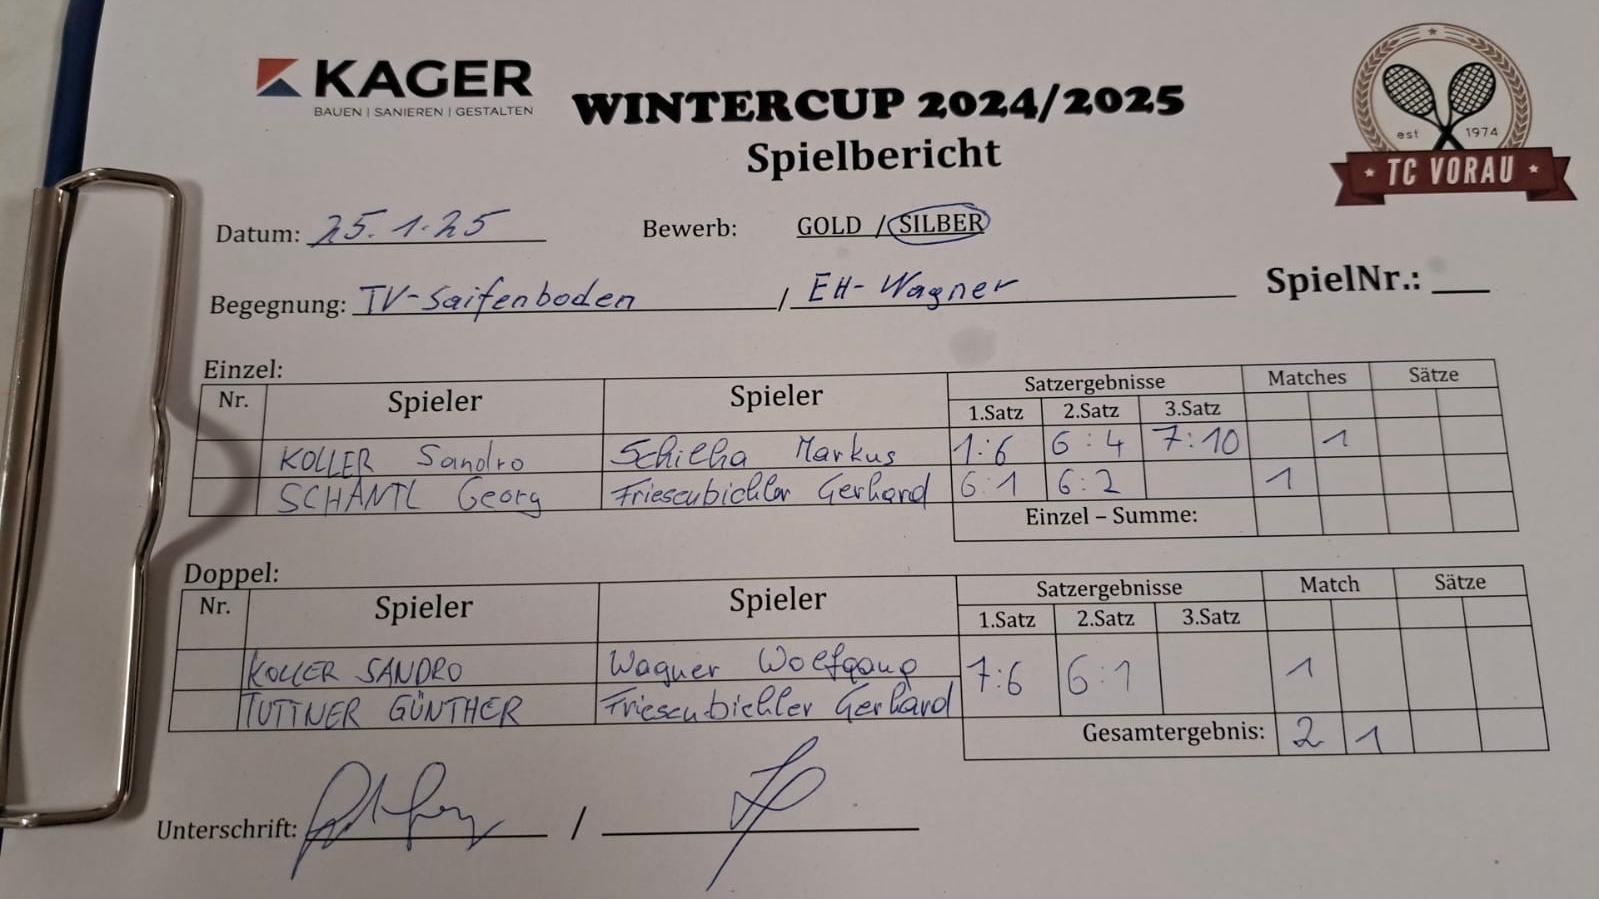 KAGER
BAUEN | SANIEREN | GESTALTEN
WINTERCUP 2024/2025
Spielbericht
est 1974
TC VORAU
Datum: 25.1.25 Bewerb: GOLD / SILBER
Begegnung: TV-Saifenboden / EH-Wagner SpielNr.: ___
Einzel:
Nr. Spieler Spieler Satzergebnisse Matches Sätze
1.Satz 2.Satz 3.Satz
KOLLER Sandro Schilha Markus 1:6 6:4 7:10 1
SCHANTL Georg Friesenbichler Gerhard 6:1 6:2 1
Einzel – Summe:
Doppel:
Nr. Spieler Spieler Satzergebnisse Match Sätze
1.Satz 2.Satz 3.Satz
KOLLER SANDRO Wagner Wolfgang 7:6 6:1 1
TUTTNER GÜNTHER Friesenbichler Gerhard
Gesamtergebnis: 2 1
Unterschrift: /